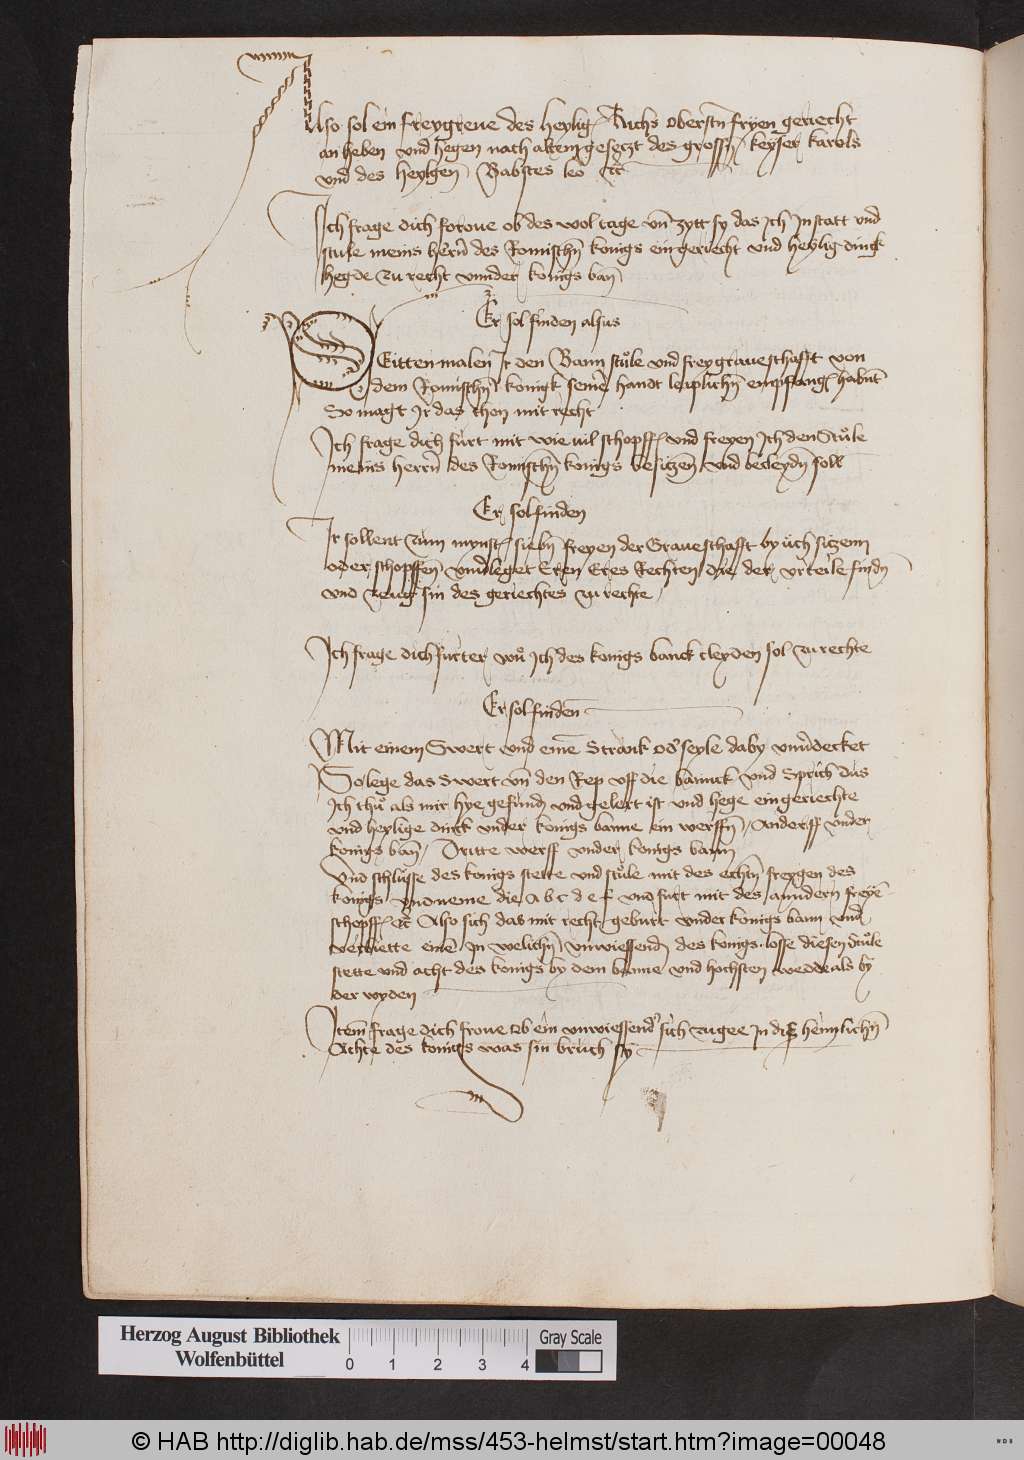 Also sol ein freygreue des heylig Richs oberstn fryen geriecht
an heben vnd hegen nach altem gesetzt des grossn keyser karols
vnd des heylgen Babstes leo etc
Ich frage dich forᷓ ob des wol tage vn̄ zytt sy das Ich In statt vnd
stule meins hern̄ des Romischn̄ konigs ein geriecht vnd heylig dingk
hegde zu recht vnnder konigs ban̄
Er sol finden alsus
SEittenmalen Ir den Bann stule vnd freygraueschafft von
dem Romischn̄ konigk seiner handt leiplichn̄ empfang habnt
So magt Ir das thon mit recht
Ich frage dich furt mit wie uil schopff vnd freyen Ich den Stule
meins herrn̄ des Romischn̄ konigs besitzen vnd becleydn̄ soll
Er sol finden
Ir sollent zum mynst siebn̄ freyen der Graueschafft by uch sitzenn
oder schopffen die der vrteile findn̄
vnd zeug sin des geriechtes zu rechte
Ich frage dich furter wu Ich des konigs banck cleyden sol zu rechte
Er sol finden
Mit einem Swert vnd eine Strank od seyle daby vnudecket
So lege das Swert vn̄ den Rep vff die bannck vnd Sprich das
Ich thu als mir hye gefund vnd gelert ist vnd hege ein geriechte
vnd heylige dinck vnder konigs banne ein werffn̄ / Anderff vnder
konigs ban̄ / Dritte werff vnder konigs bann
Vnd schlusse des konigs stette vnd stule mit des echtn̄ freygen des
konigs vnd neme die A b c d e f vnd furt mit des anndern freye
schopff etc Also sich das mit recht geburt vnder konigs bann vnd
verbiette eine In welichn̄ vnwiessend des konigs losse diesen Stule
stette vnd acht des konigs by dem banne vnd hochsten wedde als by
der wyden
Item frage dich ob ein vnwiessend sich zugee In die heimlichn̄
Achte des konigs was sin bruch sy
Herzog August Bibliothek
Wolfenbüttel
0 1 2 3 4
Gray Scale
© HAB http://diglib.hab.de/mss/453-helmst/start.htm?image=00048